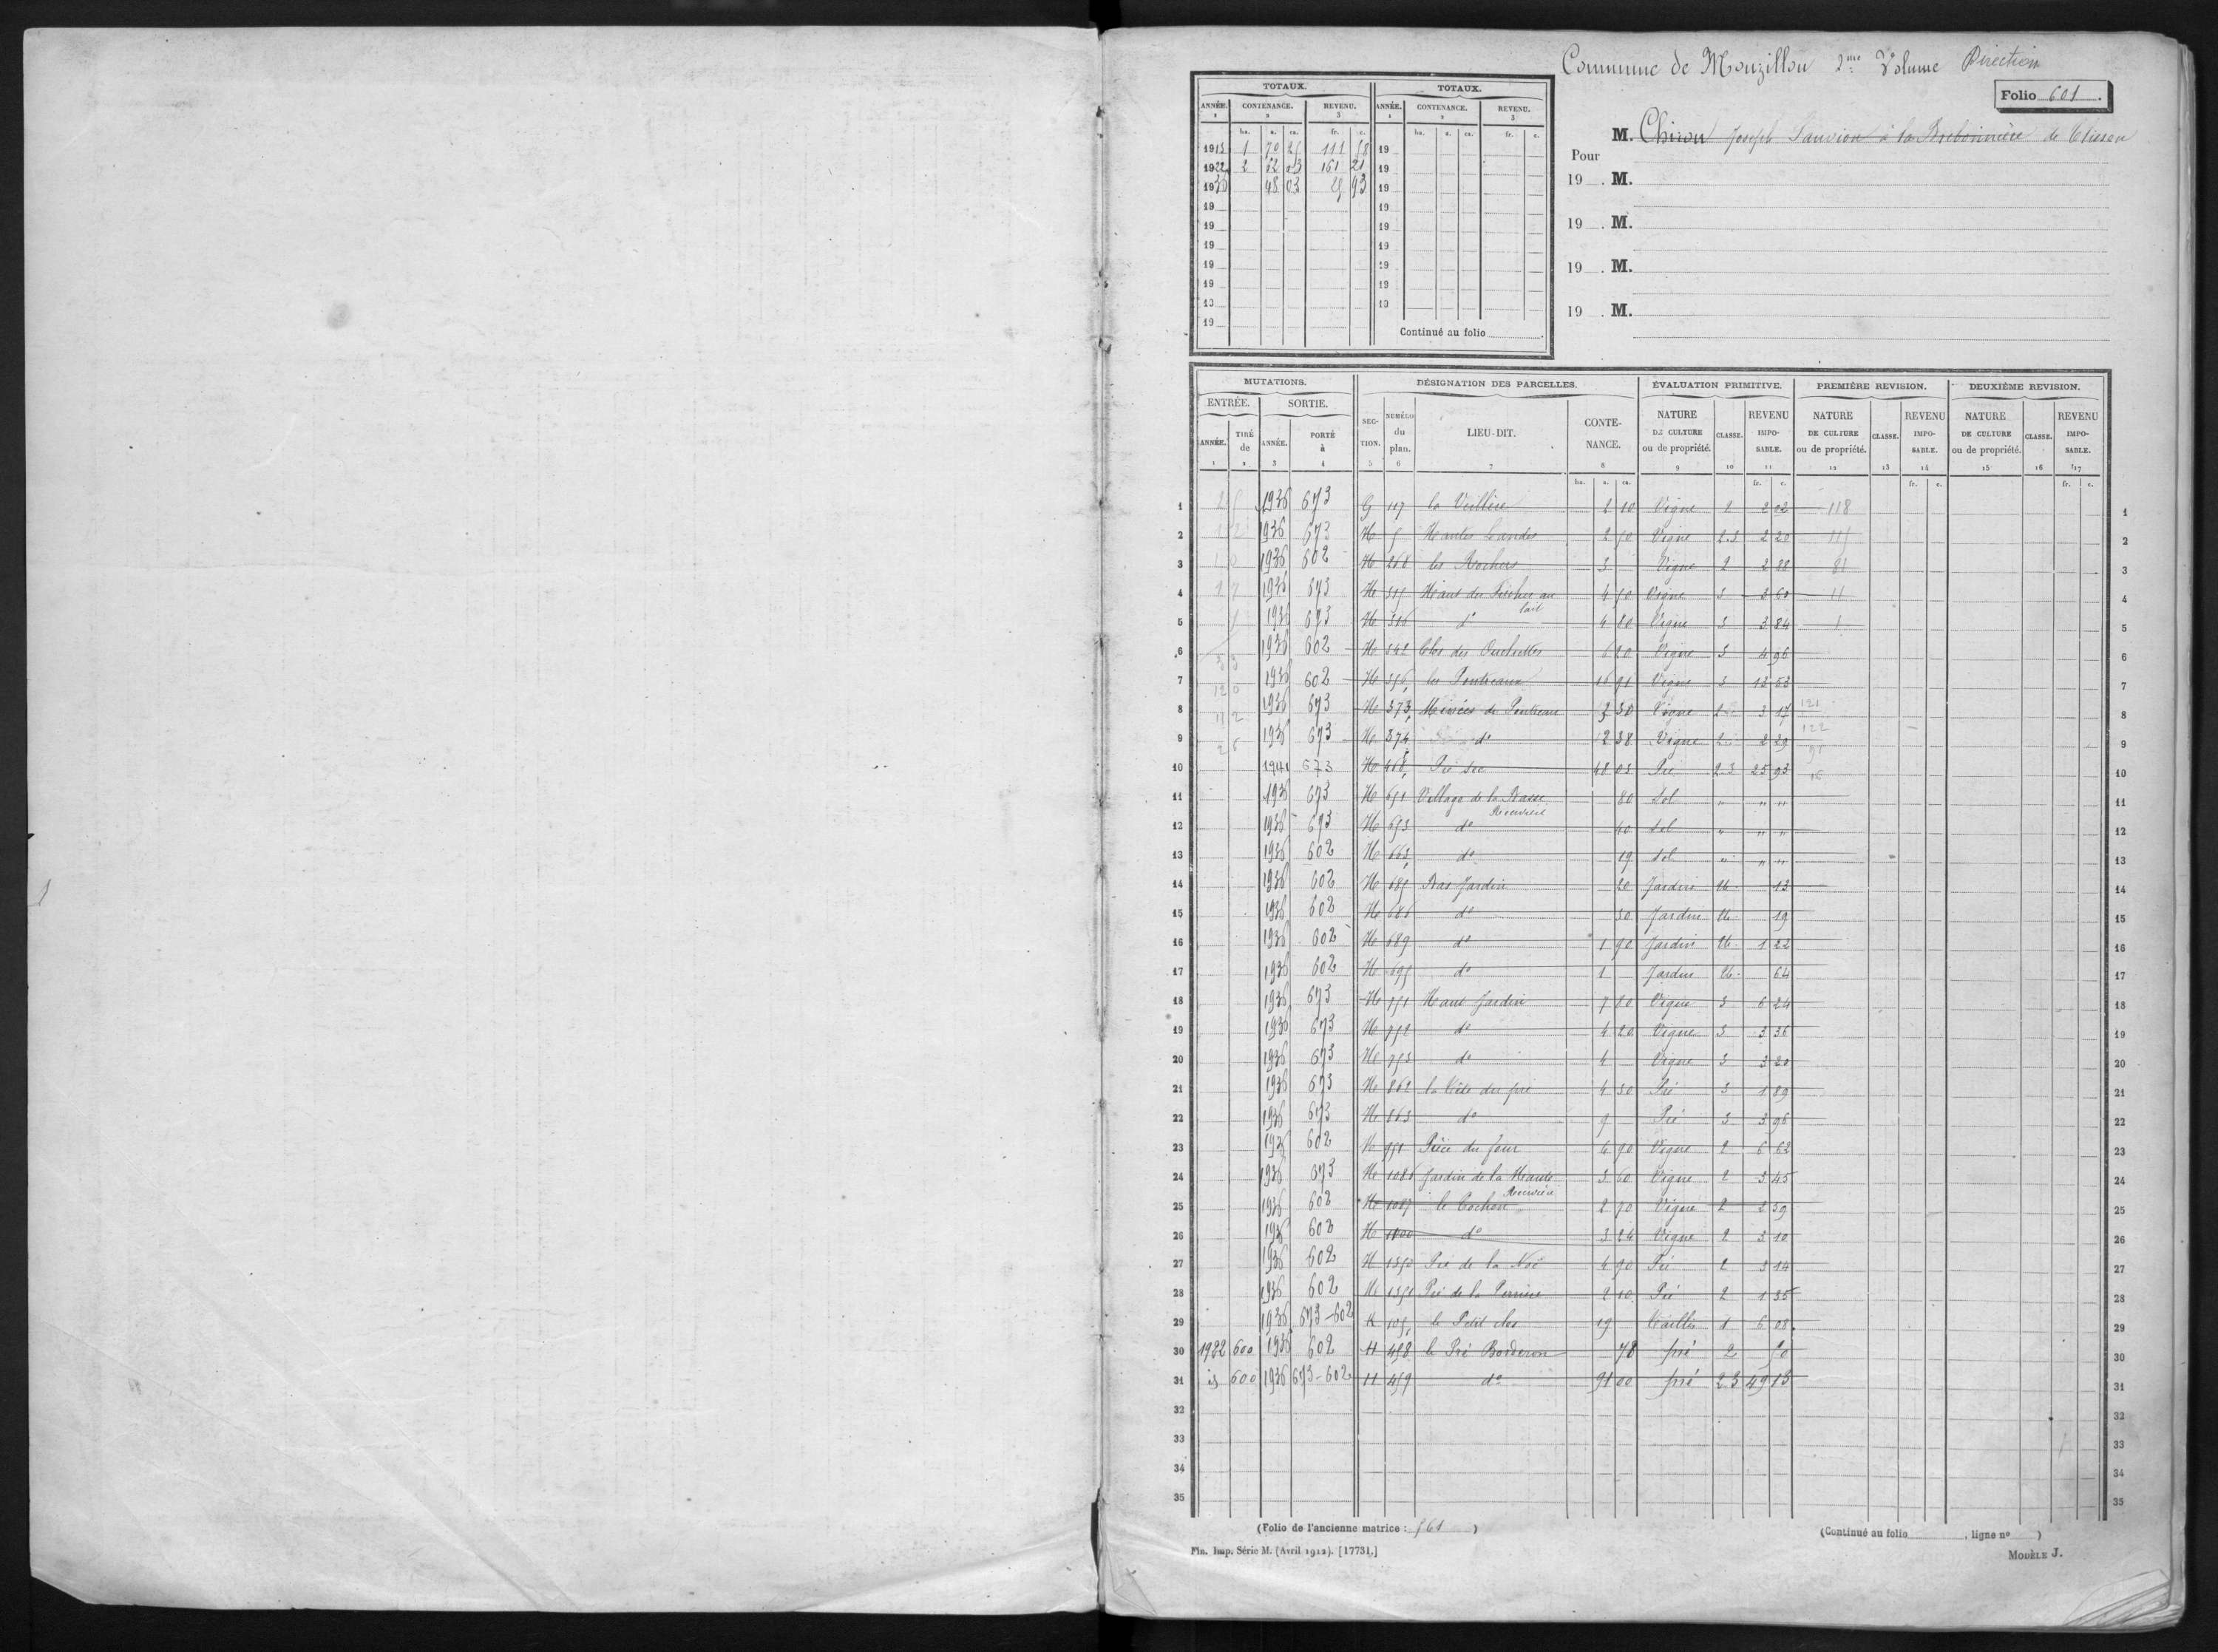 Commune de Mouzillon 2me Volume Direction
Folio 601.
M. Chiron Joseph à la de Clisson
Pour
19 . M.
19 . M.
19 . M.
19 . M.
TOTAUX. TOTAUX.
ANNÉE. CONTENANCE. REVENU. ANNÉE. CONTENANCE. REVENU.
1 2 3 1 2 3
ha. a. ca. fr. c. ha. a. ca. fr. c.
1915 1 70 25 111 58 19
1922 2 62 03 161 21 19
1936 48 03 25 93 19
19 19
19 19
19 19
19 19
19 19
19 19
19 Continué au folio
MUTATIONS. DÉSIGNATION DES PARCELLES. ÉVALUATION PRIMITIVE. PREMIÈRE REVISION. DEUXIÈME REVISION.
ENTRÉE. SORTIE.
ANNÉE. TIRÉ de ANNÉE. PORTÉ à SECTION. NUMÉRO du plan. LIEU-DIT. CONTENANCE. NATURE DE CULTURE ou de propriété. CLASSE. REVENU IMPOSABLE. NATURE DE CULTURE ou de propriété. CLASSE. REVENU IMPOSABLE. NATURE DE CULTURE ou de propriété. CLASSE. REVENU IMPOSABLE.
1 2 3 4 5 6 7 8 9 10 11 12 13 14 15 16 17
ha. a. ca. fr. c. fr. c. fr. c.
1 1936 673 G 117 la 2 10 Vigne 2 2 02 118 1
2 1936 673 H 5 Hautes Landes 2 50 Vigne 2.3 2 20 115 2
3 1936 602 H 268 les Rochers 3 Vigne 2 2 88 81 3
4 1936 673 H 315 Haut des au lait 4 50 Vigne 3 3 60 11 4
5 1936 673 H 316 do 4 80 Vigne 3 3 84 5
6 1936 602 H 342 Clos des Ouchettes 6 20 Vigne 3 4 96 6
7 1936 602 H 356 les Pontreaux 16 91 Vigne 3 13 53 7
8 1936 673 H 373 de Pontreau 3 30 Vigne 2 3 17 121 8
9 1936 673 H 374 do 2 38 Vigne 2 2 29 122 9
10 1941 673 H 468 Pré sec 48 03 Pré 2.3 25 93 10
11 1936 673 H 651 Village de la Basse 80 Sol " " " 11
12 1936 673 H 653 do 40 Sol " " " 12
13 1936 602 H 663 do 19 Sol " " " 13
14 1936 602 H 685 Bas Jardin 20 Jardin U. 13 14
15 1936 602 H 686 do 30 Jardin U. 19 15
16 1936 602 H 689 do 1 90 Jardin U. 1 22 16
17 1936 602 H 695 do 1 Jardin U. 64 17
18 1936 673 H 751 Haut Jardin 7 80 Vigne 3 6 24 18
19 1936 673 H 752 do 4 20 Vigne 3 3 36 19
20 1936 673 H 753 do 4 Vigne 3 3 20 20
21 1936 673 H 862 la Tête du pré 4 30 Pré 3 1 89 21
22 1936 673 H 863 do 9 Pré 3 3 96 22
23 1936 602 H 951 Pièce du four 6 90 Vigne 2 6 62 23
24 1936 673 H 1086 Jardin de la Haute 3 60 Vigne 2 3 45 24
25 1936 602 H 1087 le Cochon 2 70 Vigne 2 2 59 25
26 1936 602 H do 3 24 Vigne 2 3 10 26
27 1936 602 H 1350 Pré de la Noë 4 90 Pré 2 3 14 27
28 1936 602 H 1351 Pré de la Perrière 2 10 Pré 2 1 35 28
29 1936 673-602 K 105 le Petit clos 19 Taillis 1 6 08 29
30 1922 600 1936 602 H 458 le Pré Borderon 78 pré 2 50 30
31 600 1936 673-602 H 459 do 91 00 pré 2.3 49 13 31
32 32
33 33
34 34
35 35
(Folio de l'ancienne matrice : 561 ) (Continué au folio , ligne no )
Fin. Imp. Série M. (Avril 1912). [17731.] MODÈLE J.